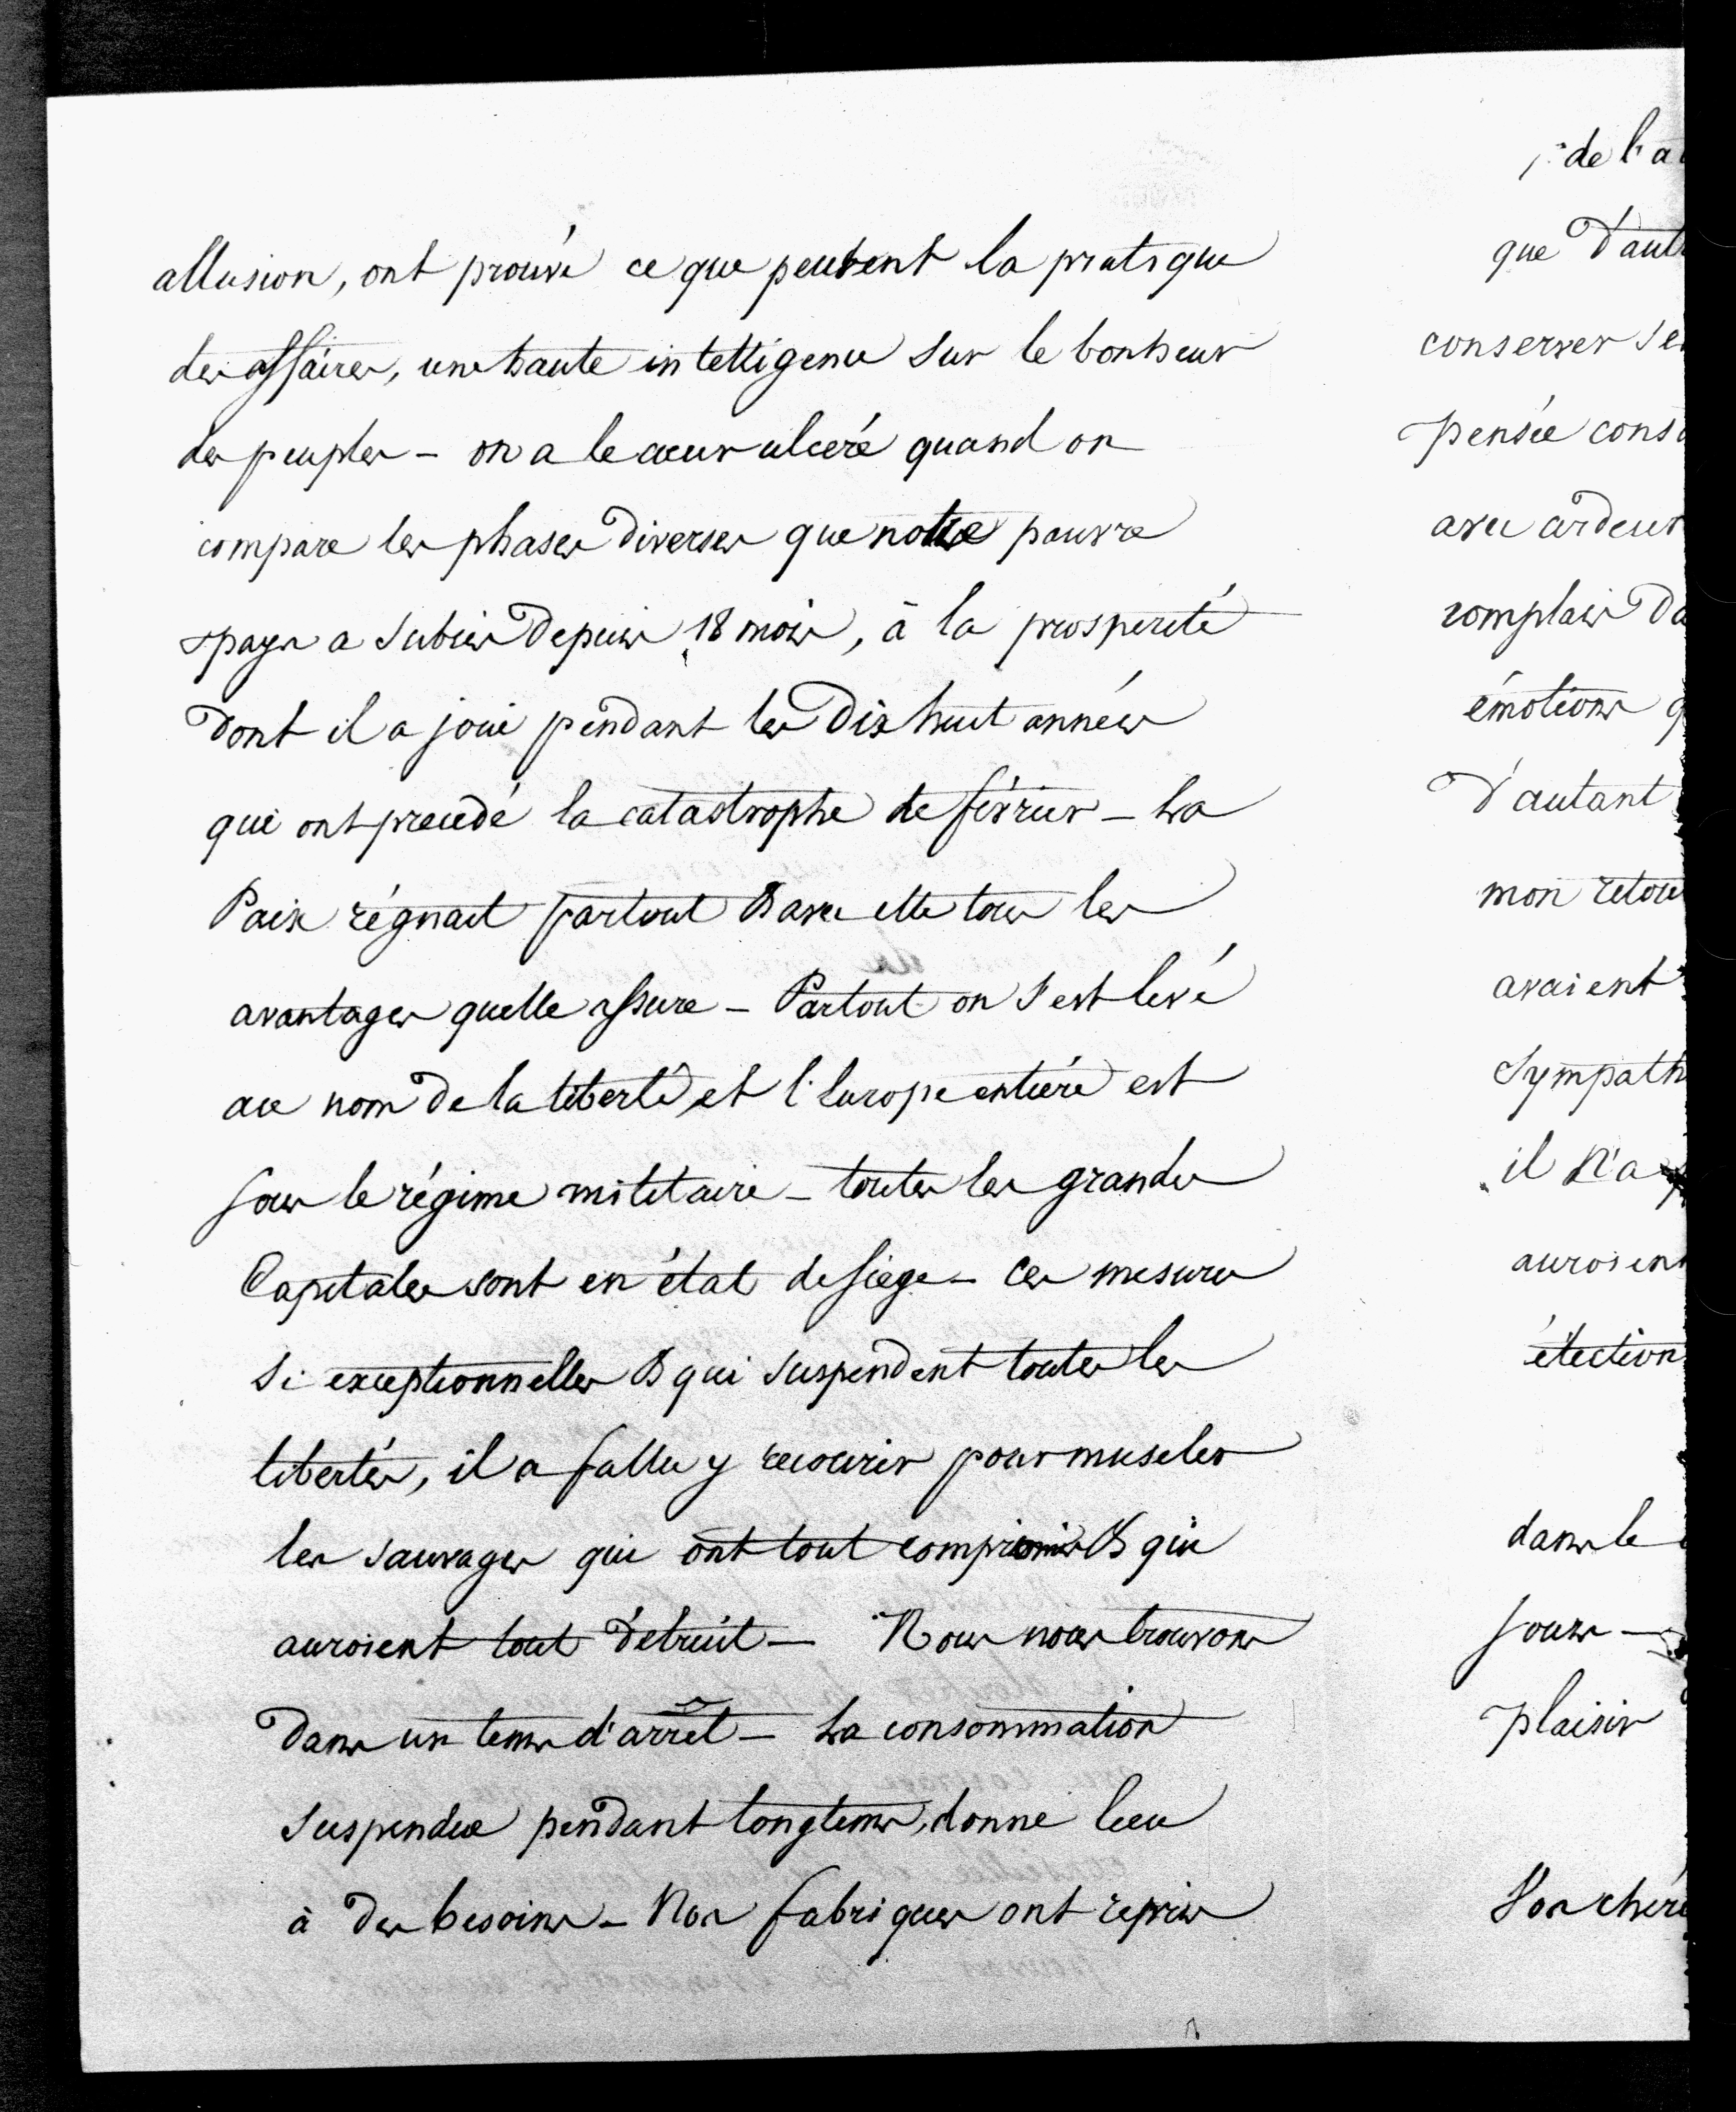 allusion, ont prouvé ce que peuvent la pratique
des affaires, une haute intelligence sur le bonheur
des peuples - on a le cœur ulcéré quand on
compare les phases diverses que notre pauvre
pays a subies depuis 18 mois, à la prosperité
dont il a joui pendant les dix huit années
qui ont precedé la catastrophe de février - La
Paix régnait partout & avec elle tous les
avantages quelle assure - Partout on s'est levé
au nom de la liberté, et l'Europe entière est
sous le régime militaire - toutes les grandes
Capitales sont en état de siège - Ces mesures
si exceptionnelles & qui suspendent toutes les
libertés, il a fallu y recourir pour museler
les sauvages qui ont tout compromis & qui
auroient tout détruit - Nous nous trouvons
dans un tems d'arrêt - La consommation
suspendue pendant longtems, donne lieu
à des besoins - Nos fabriques ont repris
de l'a
que d'aut
conserver se
pensée cons
avec ardeur
complais da
émotions q
d'autant
mon retou
avaient
Sympath
il n'a
auroient
élection
dans le
jours -
plaisir
Vos chère